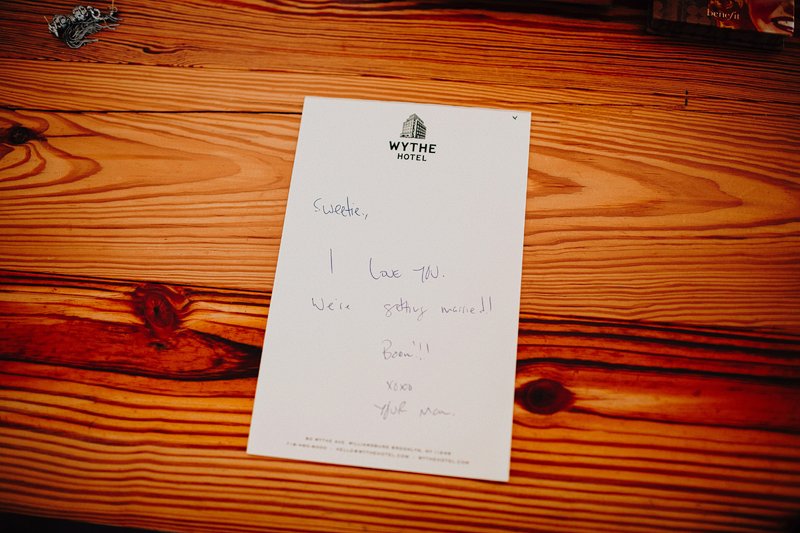 benefit
WYTHE
HOTEL
Sweetie,
I love you.
We're getting married!!
Boom!!!
xoxo
Your man.
80 WYTHE AVE. WILLIAMSBURG BROOKLYN, NY 11249
718-460-8000 - HELLO@WYTHEHOTEL.COM - WYTHEHOTEL.COM